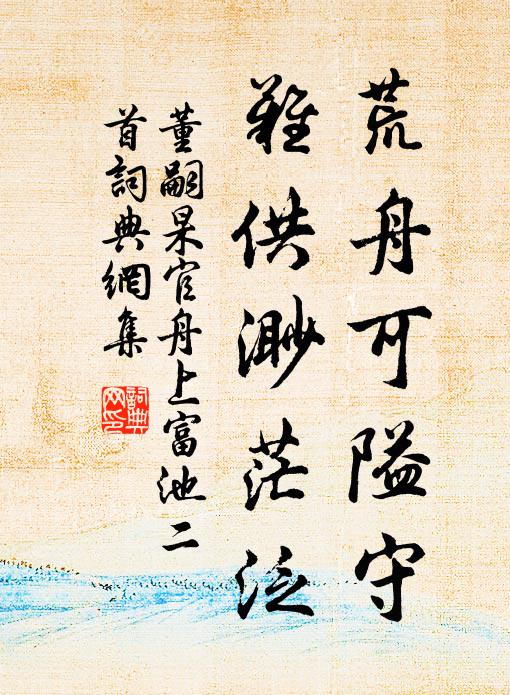 荒舟可隘守
難供渺茫泛
董嗣杲官舟上富池二
首詞典網集
詞典
网印